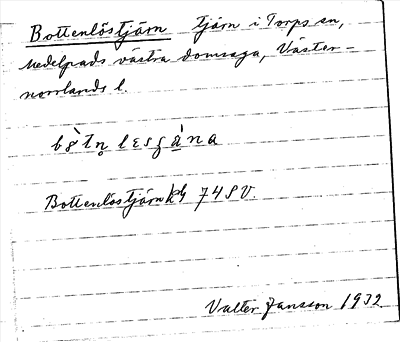 Bottenlöstjärn tjärn i Torps sn,
Medelpads västra domsaga, Väster-
norrlands l.
Bottenlöstjärn kbl 74SV.
Valter Jansson 1932